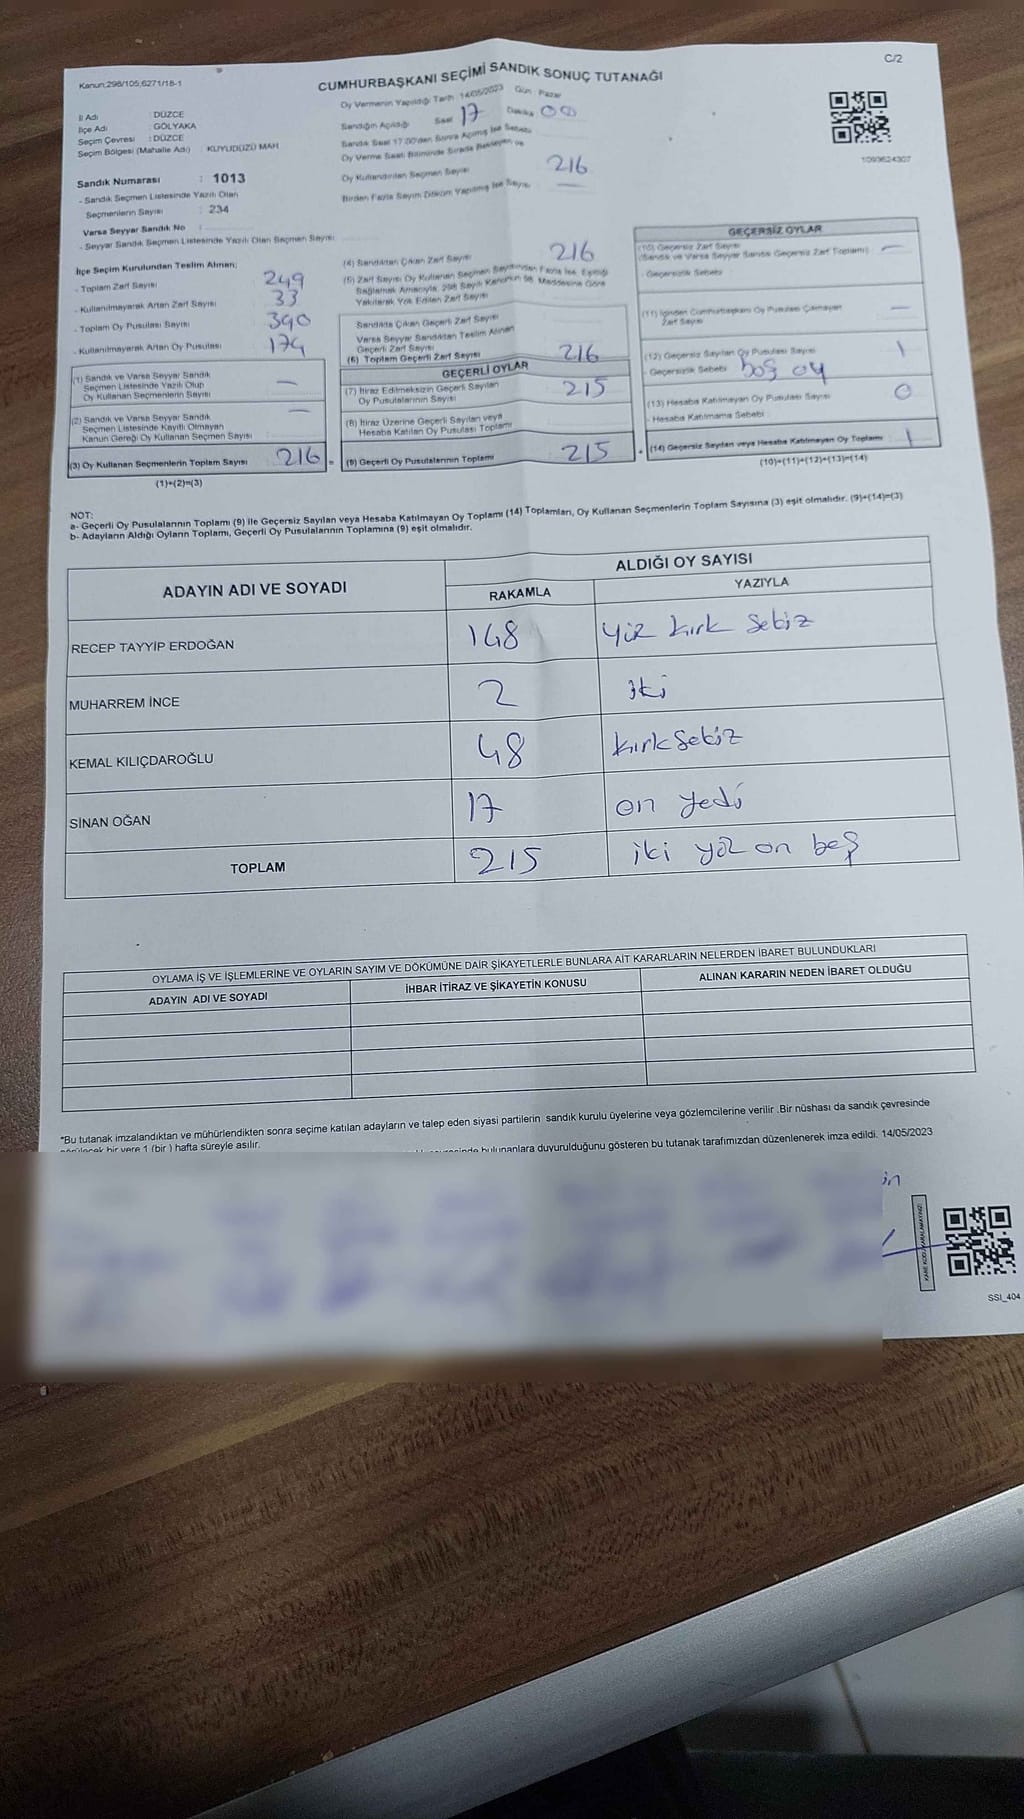 Kanun;298/105;6271/18-1
C/2
CUMHURBAŞKANI SEÇİMİ SANDIK SONUÇ TUTANAĞI
İl Adı : DÜZCE
İlçe Adı : GÖLYAKA
Seçim Çevresi : DÜZCE
Seçim Bölgesi (Mahalle Adı) : KUYUDÜZÜ MAH
Sandık Numarası : 1013
- Sandık Seçmen Listesinde Yazılı Olan
Seçmenlerin Sayısı : 234
Varsa Seyyar Sandık No :
- Seyyar Sandık Seçmen Listesinde Yazılı Olan Seçmen Sayısı
Oy Vermenin Yapıldığı Tarih :14/05/2023 Gün : Pazar
Sandığın Açıldığı Saat 17 Dakika 00
Sandık Saat 17:00'den Sonra Açılmış İse Sebebi
Oy Verme Saati Bitiminde Sırada Bekleyen ve
Oy Kullandırılan Seçmen Sayısı 216
Birden Fazla Sayım Döküm Yapılmış İse Sayısı —
1093624307
İlçe Seçim Kurulundan Teslim Alınan;
- Toplam Zarf Sayısı 249
- Kullanılmayarak Artan Zarf Sayısı 33
- Toplam Oy Pusulası Sayısı 390
- Kullanılmayarak Artan Oy Pusulası 174
(1) Sandık ve Varsa Seyyar Sandık
Seçmen Listesinde Yazılı Olup
Oy Kullanan Seçmenlerin Sayısı —
(2) Sandık ve Varsa Seyyar Sandık
Seçmen Listesinde Kayıtlı Olmayan
Kanun Gereği Oy Kullanan Seçmen Sayısı —
(3) Oy Kullanan Seçmenlerin Toplam Sayısı 216
(1)+(2)=(3)
(4) Sandıktan Çıkan Zarf Sayısı 216
(5) Zarf Sayısı Oy Kullanan Seçmen Sayısından Fazla İse, Eşitliği
Sağlamak Amacıyla, 298 Sayılı Kanunun 98. Maddesine Göre
Yakılarak Yok Edilen Zarf Sayısı
Sandıkta Çıkan Geçerli Zarf Sayısı
Varsa Seyyar Sandıktan Teslim Alınan
Geçerli Zarf Sayısı
(6) Toplam Geçerli Zarf Sayısı 216
GEÇERLİ OYLAR
(7) İtiraz Edilmeksizin Geçerli Sayılan
Oy Pusulalarının Sayısı 215
(8) İtiraz Üzerine Geçerli Sayılan veya
Hesaba Katılan Oy Pusulası Toplamı
(9) Geçerli Oy Pusulalarının Toplamı 215
GEÇERSİZ OYLAR
(10) Geçersiz Zarf Sayısı
(Sandık ve Varsa Seyyar Sandık Geçersiz Zarf Toplamı) —
- Geçersizlik Sebebi
(11) İçinden Cumhurbaşkanı Oy Pusulası Çıkmayan
Zarf Sayısı —
(12) Geçersiz Sayılan Oy Pusulası Sayısı 1
- Geçersizlik Sebebi boş oy
(13) Hesaba Katılmayan Oy Pusulası Sayısı 0
- Hesaba Katılmama Sebebi
(14) Geçersiz Sayılan veya Hesaba Katılmayan Oy Toplamı 1
(10)+(11)+(12)+(13)=(14)
NOT:
a- Geçerli Oy Pusulalarının Toplamı (9) ile Geçersiz Sayılan veya Hesaba Katılmayan Oy Toplamı (14) Toplamları, Oy Kullanan Seçmenlerin Toplam Sayısına (3) eşit olmalıdır. (9)+(14)=(3)
b- Adayların Aldığı Oyların Toplamı, Geçerli Oy Pusulalarının Toplamına (9) eşit olmalıdır.
ADAYIN ADI VE SOYADI
ALDIĞI OY SAYISI
RAKAMLA YAZIYLA
RECEP TAYYİP ERDOĞAN 148 yüz kırk sekiz
MUHARREM İNCE 2 iki
KEMAL KILIÇDAROĞLU 48 kırk sekiz
SİNAN OĞAN 17 on yedi
TOPLAM 215 iki yüz on beş
OYLAMA İŞ VE İŞLEMLERİNE VE OYLARIN SAYIM VE DÖKÜMÜNE DAİR ŞİKAYETLERLE BUNLARA AİT KARARLARIN NELERDEN İBARET BULUNDUKLARI
ADAYIN ADI VE SOYADI
İHBAR İTİRAZ VE ŞİKAYETİN KONUSU
ALINAN KARARIN NEDEN İBARET OLDUĞU
*Bu tutanak imzalandıktan ve mühürlendikten sonra seçime katılan adayların ve talep eden siyasi partilerin sandık kurulu üyelerine veya gözlemcilerine verilir .Bir nüshası da sandık çevresinde
görülecek bir yere 1 (bir ) hafta süreyle asılır.
bulunanlara duyurulduğunu gösteren bu tutanak tarafımızdan düzenlenerek imza edildi. 14/05/2023
SSİ_404